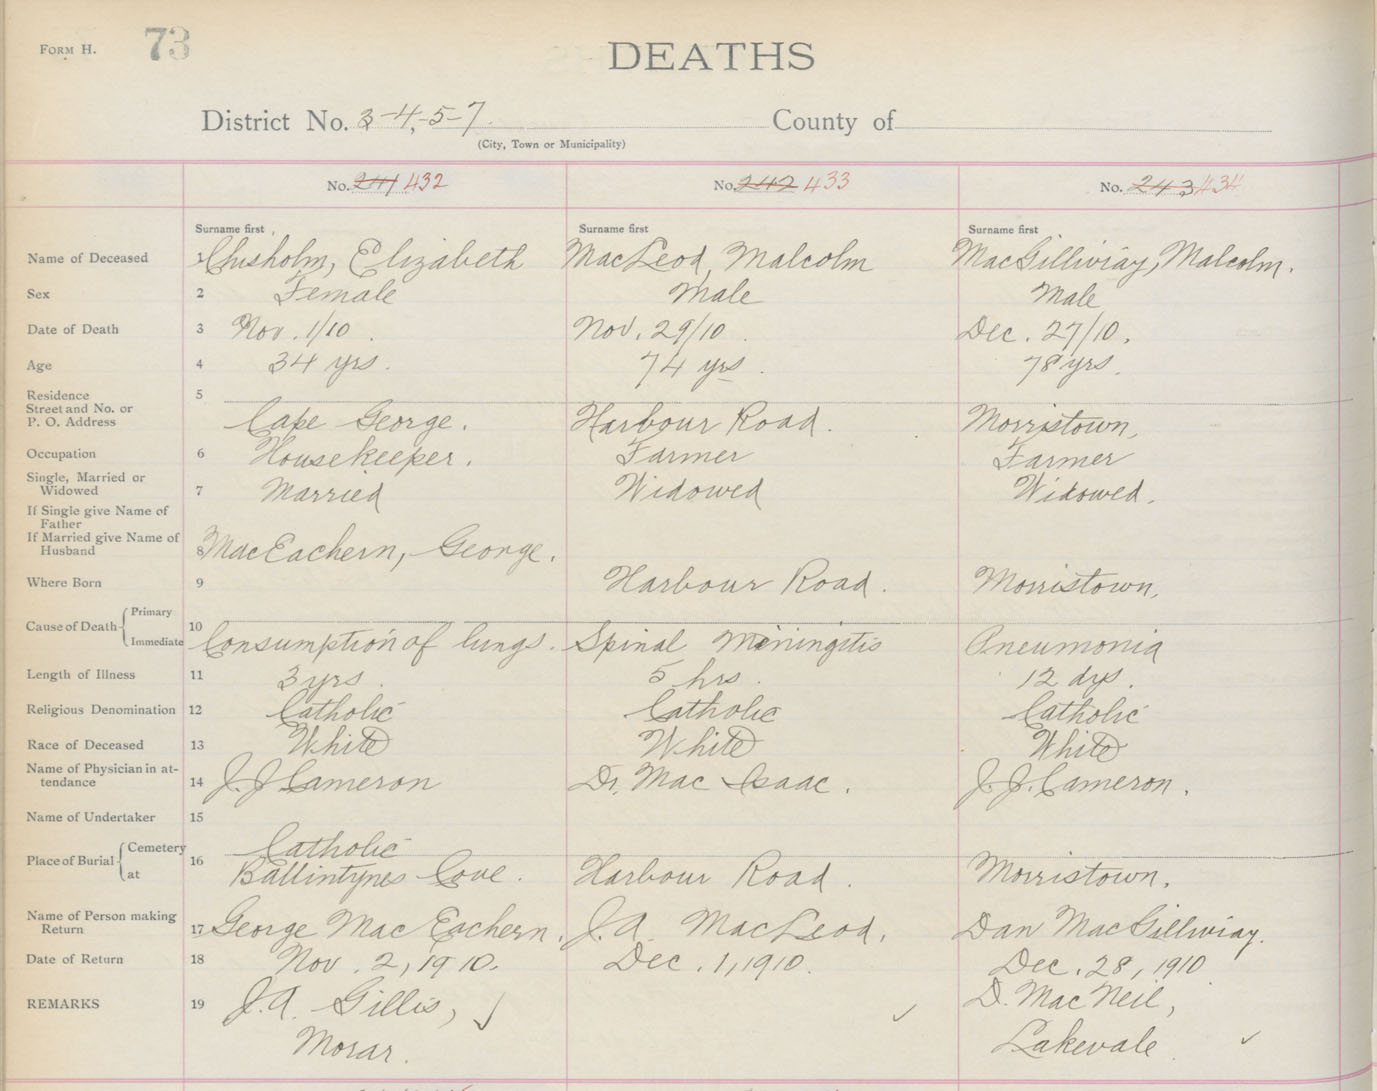 FORM H. 73
DEATHS
District No. 3-4,-5-7. County of
(City, Town or Municipality)
No. 241 432 No. 242 433 No. 243 434
Surname first Surname first Surname first
Name of Deceased 1 Chisholm, Elizabeth MacLeod, Malcolm MacGillivray, Malcolm.
Sex 2 Female Male Male
Date of Death 3 Nov. 1/10. Nov. 29/10. Dec. 27/10.
Age 4 34 yrs. 74 yrs. 78 yrs.
Residence 5
Street and No. or
P. O. Address Cape George. Harbour Road. Morristown,
Occupation 6 Housekeeper. Farmer Farmer
Single, Married or
Widowed 7 Married Widowed Widowed.
If Single give Name of
Father
If Married give Name of
Husband 8 MacEachern, George.
Where Born 9 Harbour Road. Morristown,
Cause of Death Primary
10
Immediate Consumption of lungs. Spinal Miningitis Pneumonia
Length of Illness 11 3 yrs. 5 hrs. 12 dys.
Religious Denomination 12 Catholic Catholic Catholic
Race of Deceased 13 White White White
Name of Physician in at-
tendance 14 J.J. Cameron Dr. Mac Isaac. J.J. Cameron.
Name of Undertaker 15
Place of Burial Cemetery 16 Catholic
at Ballintynes Cove. Harbour Road. Morristown.
Name of Person making
Return 17 George Mac Eachern. J.A. MacLeod. Dan MacGillivray.
Date of Return 18 Nov. 2, 1910. Dec. 1, 1910. Dec. 28, 1910
REMARKS 19 J.A. Gillis, D. MacNeil,
Morar. Lakevale.